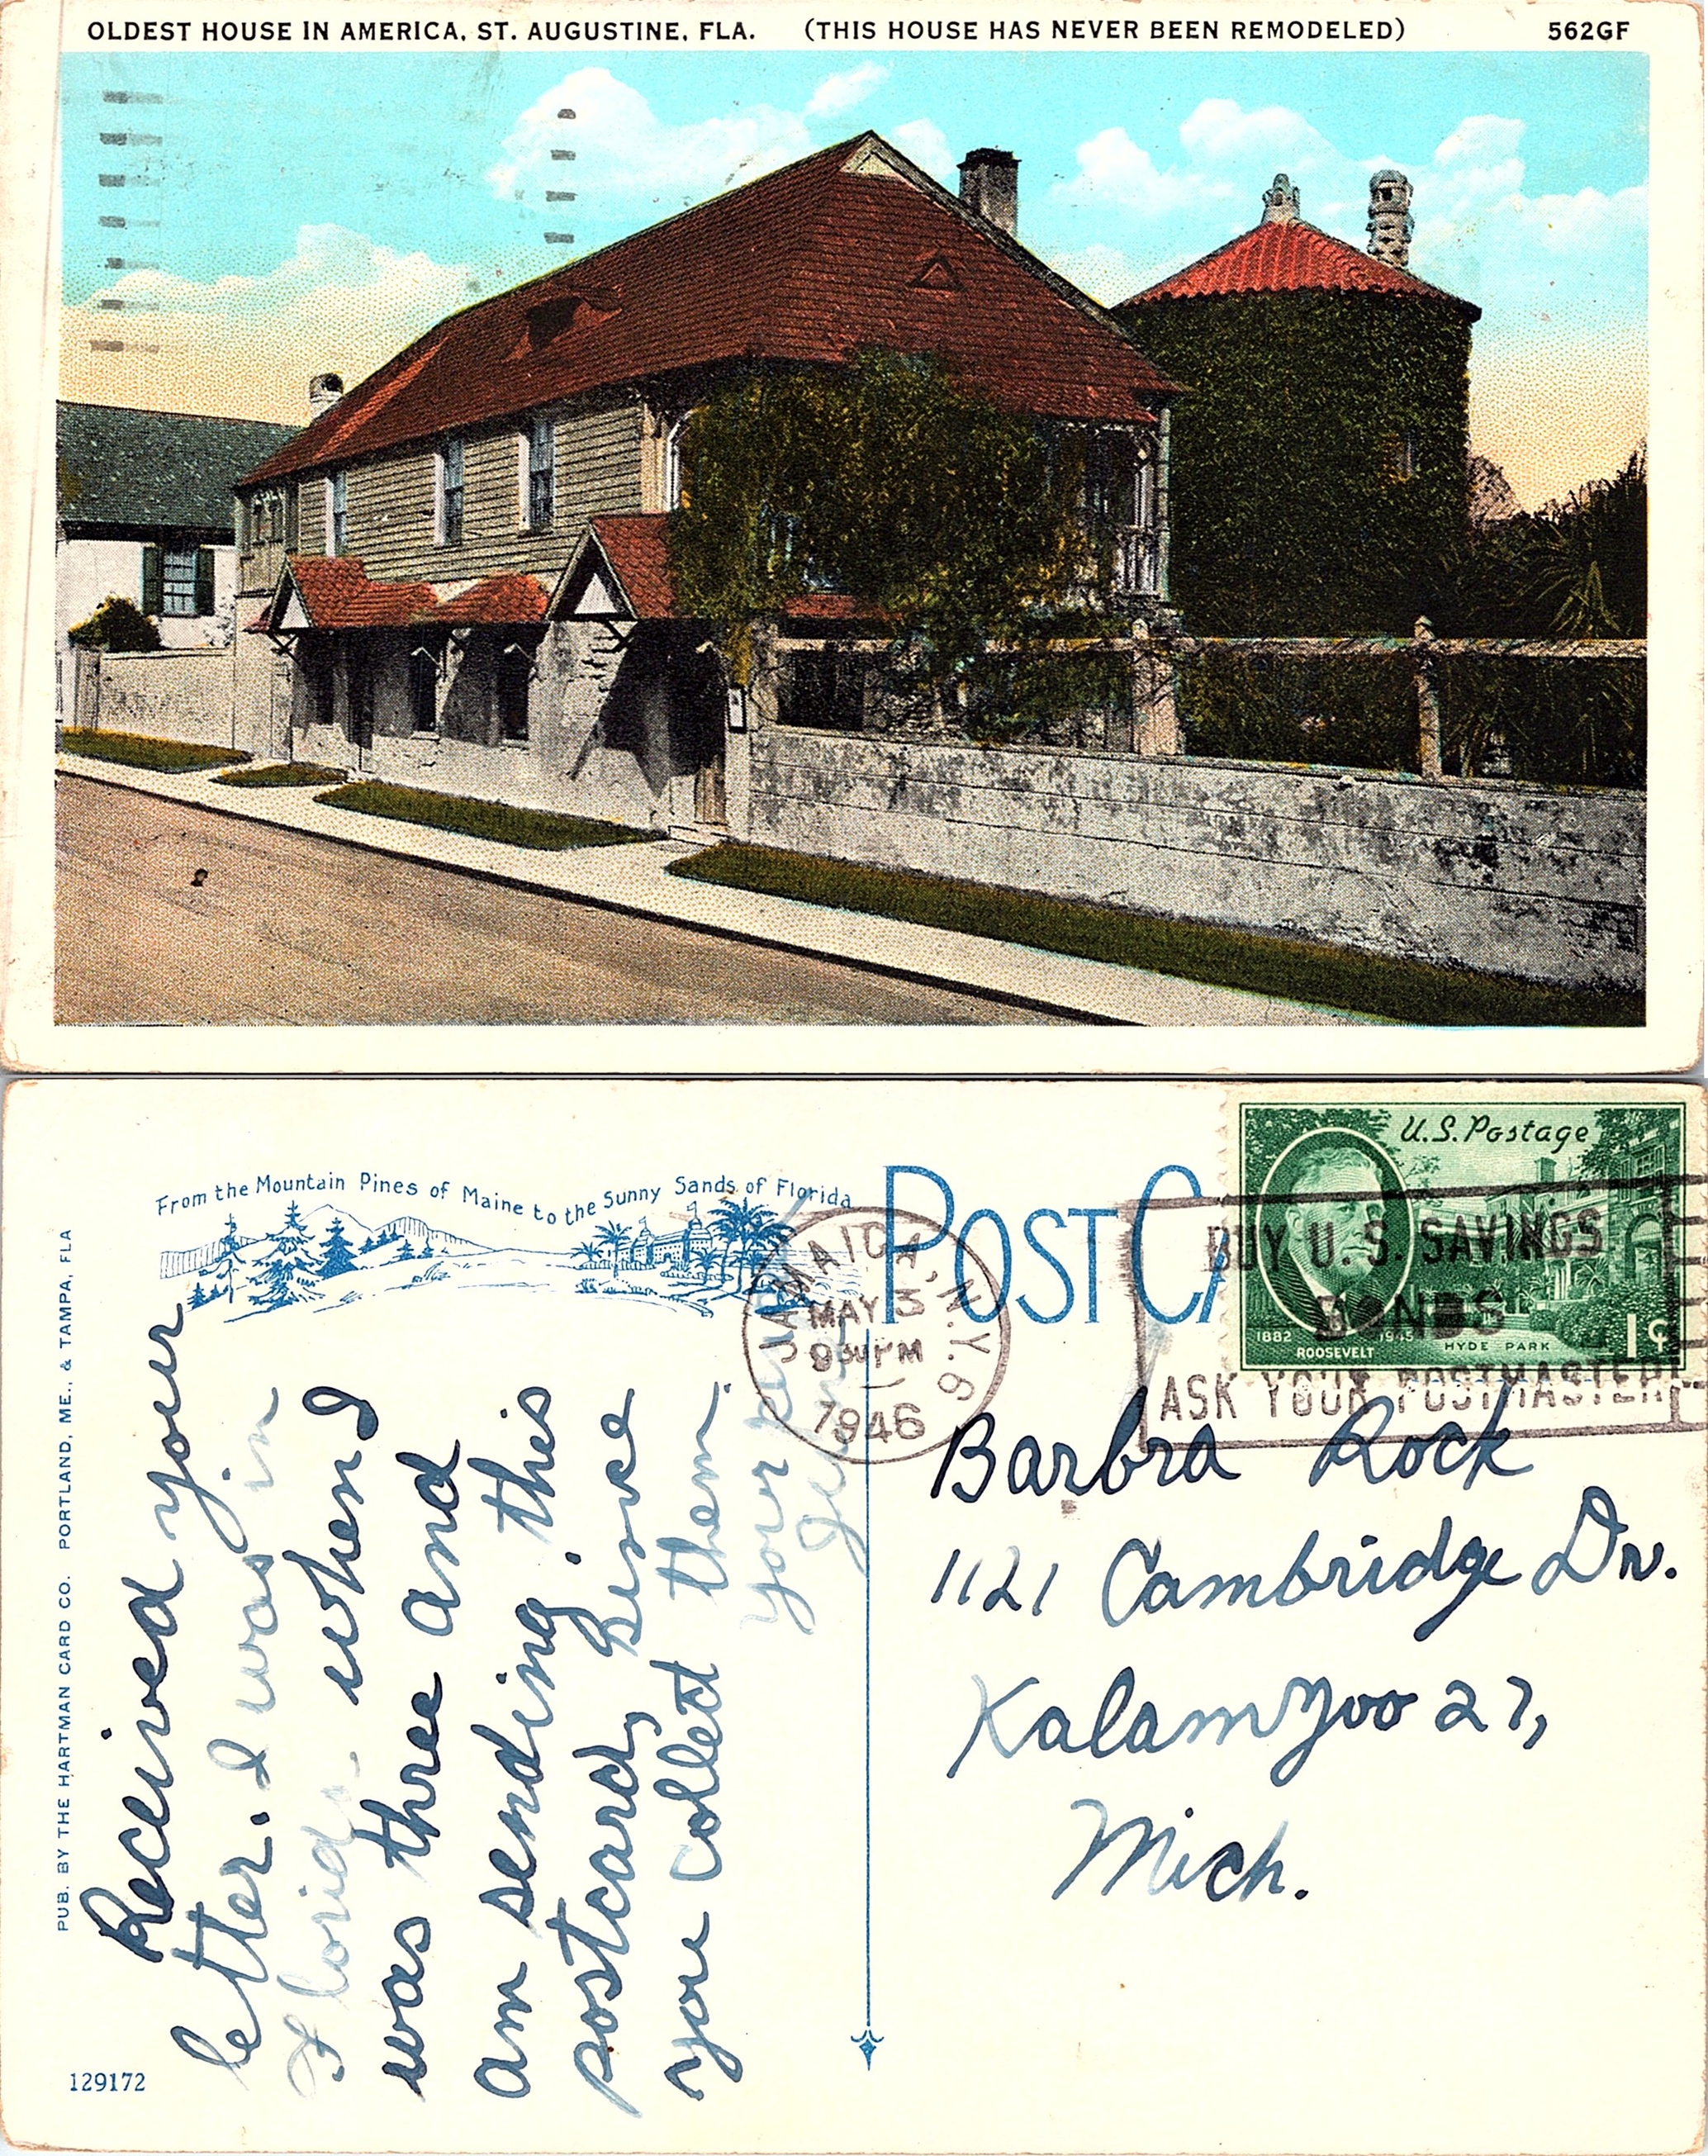 OLDEST HOUSE IN AMERICA, ST. AUGUSTINE, FLA. (THIS HOUSE HAS NEVER BEEN REMODELED) 562GF
From the Mountain Pines of Maine to the Sunny Sands of Florida
POST CA
U.S. Postage
1882 1945
ROOSEVELT
HYDE PARK
1¢
JAMAICA, N.Y. 6
MAY 3
9 30 PM
1946
BUY U.S. SAVINGS
BONDS
ASK YOUR POSTMASTER
PUB. BY THE HARTMAN CARD CO. PORTLAND, ME., & TAMPA, FLA
Received your
letter. I was in
Florida when I
was three and
am sending this
postcard, Since
you collect them.
your
Barbra Rock
1121 Cambridge Dr.
Kalamzoo 27,
Mich.
129172